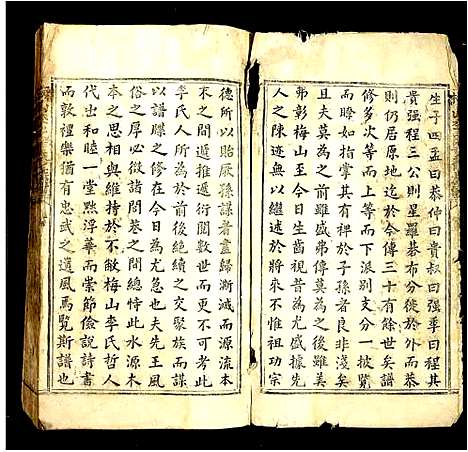 生子四孟曰恭仲曰貴叔曰强季曰程其
貴强程三公則星羅碁布分徙於外而恭
則仍居原地迄於今傳三十有餘世矣譜
修多次一而上等而下派别支分一披覽
而瞭如指掌其有裨於子孫者良非淺矣
且夫莫為之前雖盛弗傳莫為之後雖美
弗彰梅山至今日生齒視昔為尤盛據先
人之陳迹無以繼述於將來不惟祖功宗
德所以貽厥孫謀者盡歸漸滅而源流本
末之間遞推遞衍閱數世而更不可考此
李氏人所為於前後絶續之交聚族而謀
以譜牒之修在今日為尤急也夫先王風
俗之厚必徵諸門閭之間總恃此水源木
本之思相與維持於不敝梅山李氏哲人
代出和睦一堂黜浮華而崇節儉說詩書
而敦禮樂猶有忠武之遺風焉覽斯譜也